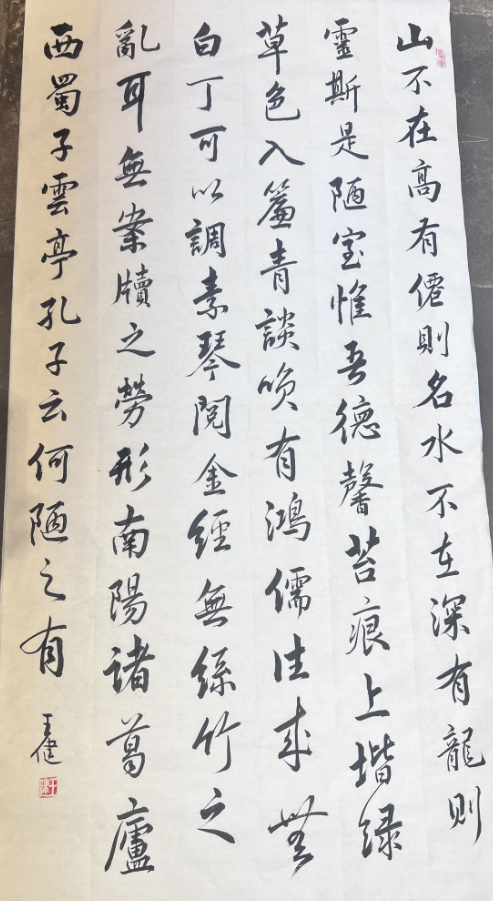 山不在高有僊則名水不在深有龍則
靈斯是陋室惟吾德馨苔痕上堦绿
草色入簾青談咲有鴻儒往来無
白丁可以調素琴閲金經無絲竹之
亂耳無案牘之勞形南陽諸葛廬
西蜀子雲亭孔子云何陋之有
王健